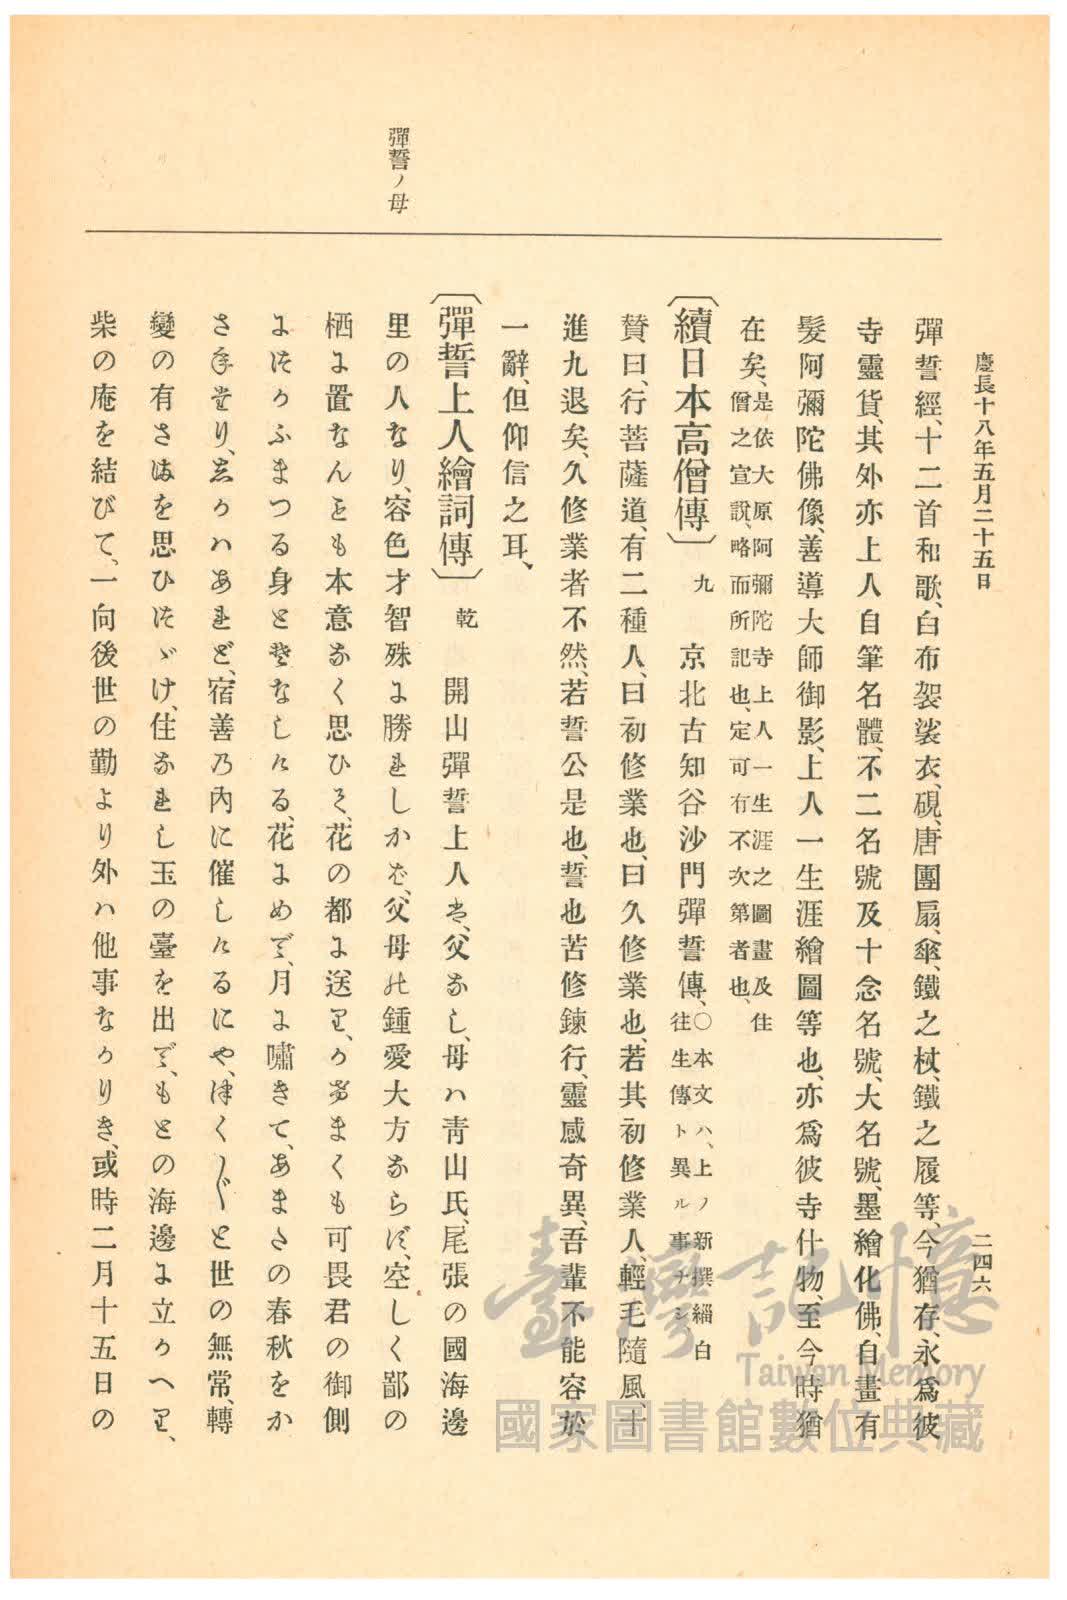 慶長十八年五月二十五日
二四六
彈誓ノ母
彈誓經、十二首和歌、白布袈裟衣、硯、唐團扇、傘、鐵之杖、鐵之履等、今猶存、永爲彼
寺靈貨、其外亦上人自筆名體、不二名號及十念名號、大名號、墨繪化佛、自畫有
髮阿彌陀佛像、善導大師御影、上人一生涯繪圖等也、亦爲彼寺什物、至今時猶
在矣、是依大原阿彌陀寺上人一生涯之圖畫及住
僧之宣說、略而所記也、定可有不次第者也、
〔續日本高僧傳〕 九 京北古知谷沙門彈誓傳、〇本文ハ、上ノ新撰緇白
往生傳ト異ル事ナシ、
贊曰、行菩薩道、有二種人、曰初修業也、曰久修業也、若其初修業人、輕毛隨風、十
進九退矣、久修業者不然、若誓公是也、誓也苦修鍊行、靈感奇異、吾輩不能容於
一辭、但仰信之耳、
〔彈誓上人繪詞傳〕 乾 開山彈誓上人は、父なし、母ハ靑山氏、尾張の國海邊
里の人なり、容色才智殊に勝れしかば、父母の鍾愛大方ならず、空しく鄙の
栖に置なんとも本意なく思ひて、花の都に送り、かけまくも可畏君の御側
につかふまつる身とぞなしける、花にめで、月に嘯きて、あまたの春秋をか
さ年たり、志かハあれど、宿善乃內に催しけるにや、つく〲と世の無常、轉
變の有さまを思ひつゞけ、住なれし玉の臺を出で、もとの海邊に立かへり、
柴の庵を結びて、一向後世の勤より外ハ他事なかりき、或時二月十五日の
臺灣記憶
Taiwan Memory
國家圖書館數位典藏